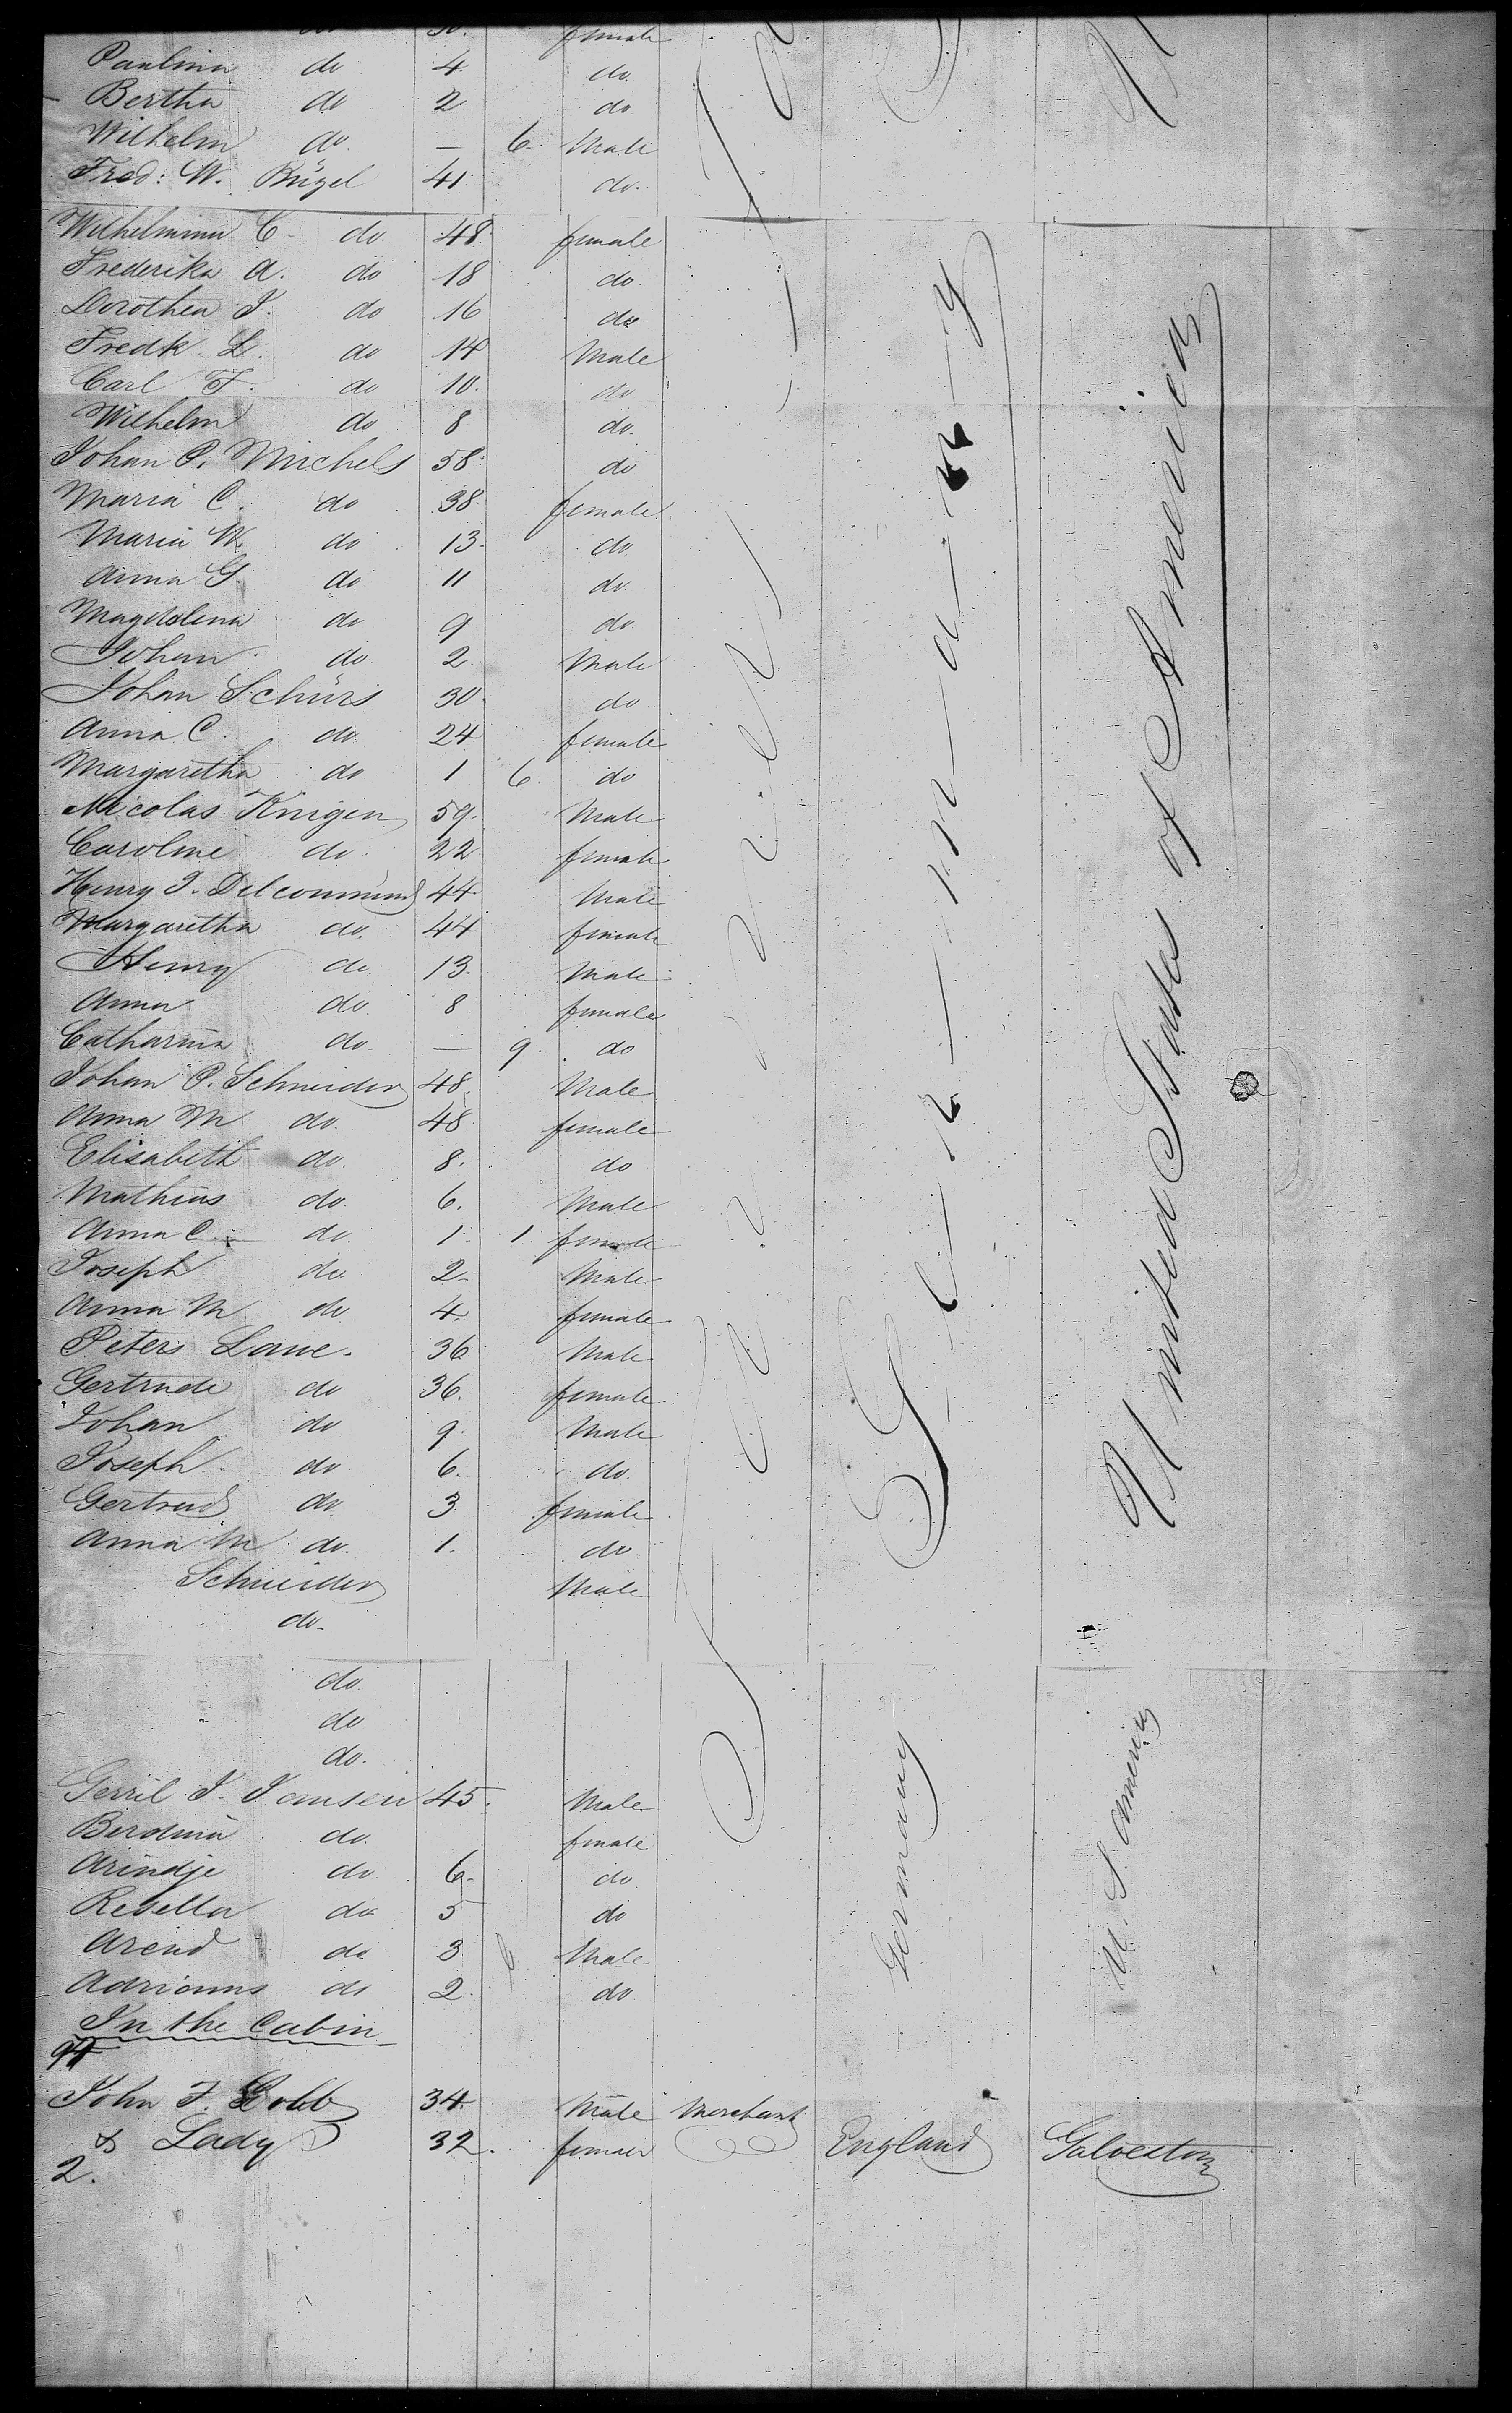 30. female
Paulina do 4 do.
Bertha do 2 do
Wilhelm do. — 6. Male
Fred: W. Bügel 41 do.
Wilhelmina C. do 48 female
Frederika A. do 18 do
Dorothea J. do 16 do
Fredk. L. do 14 Male
Carl F. do 10. do
Wilhelm do 8 do.
Johan P. Michels 58 do
Maria C. do 38 female
Maria W. do 13. do.
Anna G. do 11 do
Magdolena do 9 do.
Johan do 2. Male
Johan Schürs 30 do
Anna C. do. 24 female
Margaretha do 1 6 do
Nicolas Knigen 59. Male
Caroline do. 22 female
Henry J. Delcommune 44. Male
Margaretha do. 44 female
Henry do 13. Male
Anna do. 8 female
Catharina do. — 9. do
Johan P. Schneider 48. Male
Anna M do. 48 female
Elisabeth do. 8. do
Mathias do. 6. Male
Anna C. do. 1 1 female
Joseph do. 2 Male
Anna M do 4. female
Peters Laue. 36 Male
Gertrude do 36. female
Johan do 9. Male
Joseph. do 6. do.
Gertrud do. 3 female
Anna M. do. 1. do
Schneider Male
do.
do.
do
do.
Gerril J. Jansen 45. Male
Berdina do. female
Arindje do 6. do.
Rebella do 5 do
Arend do 3 Male
Adrianus do 2. do
Farmers
Ge-r-m-a-n-y
United States of America
Germany
U. S. America
In the Cabin
John F. Gobb 34. Male Merchant
& Lady 32. female England Galveston
2.